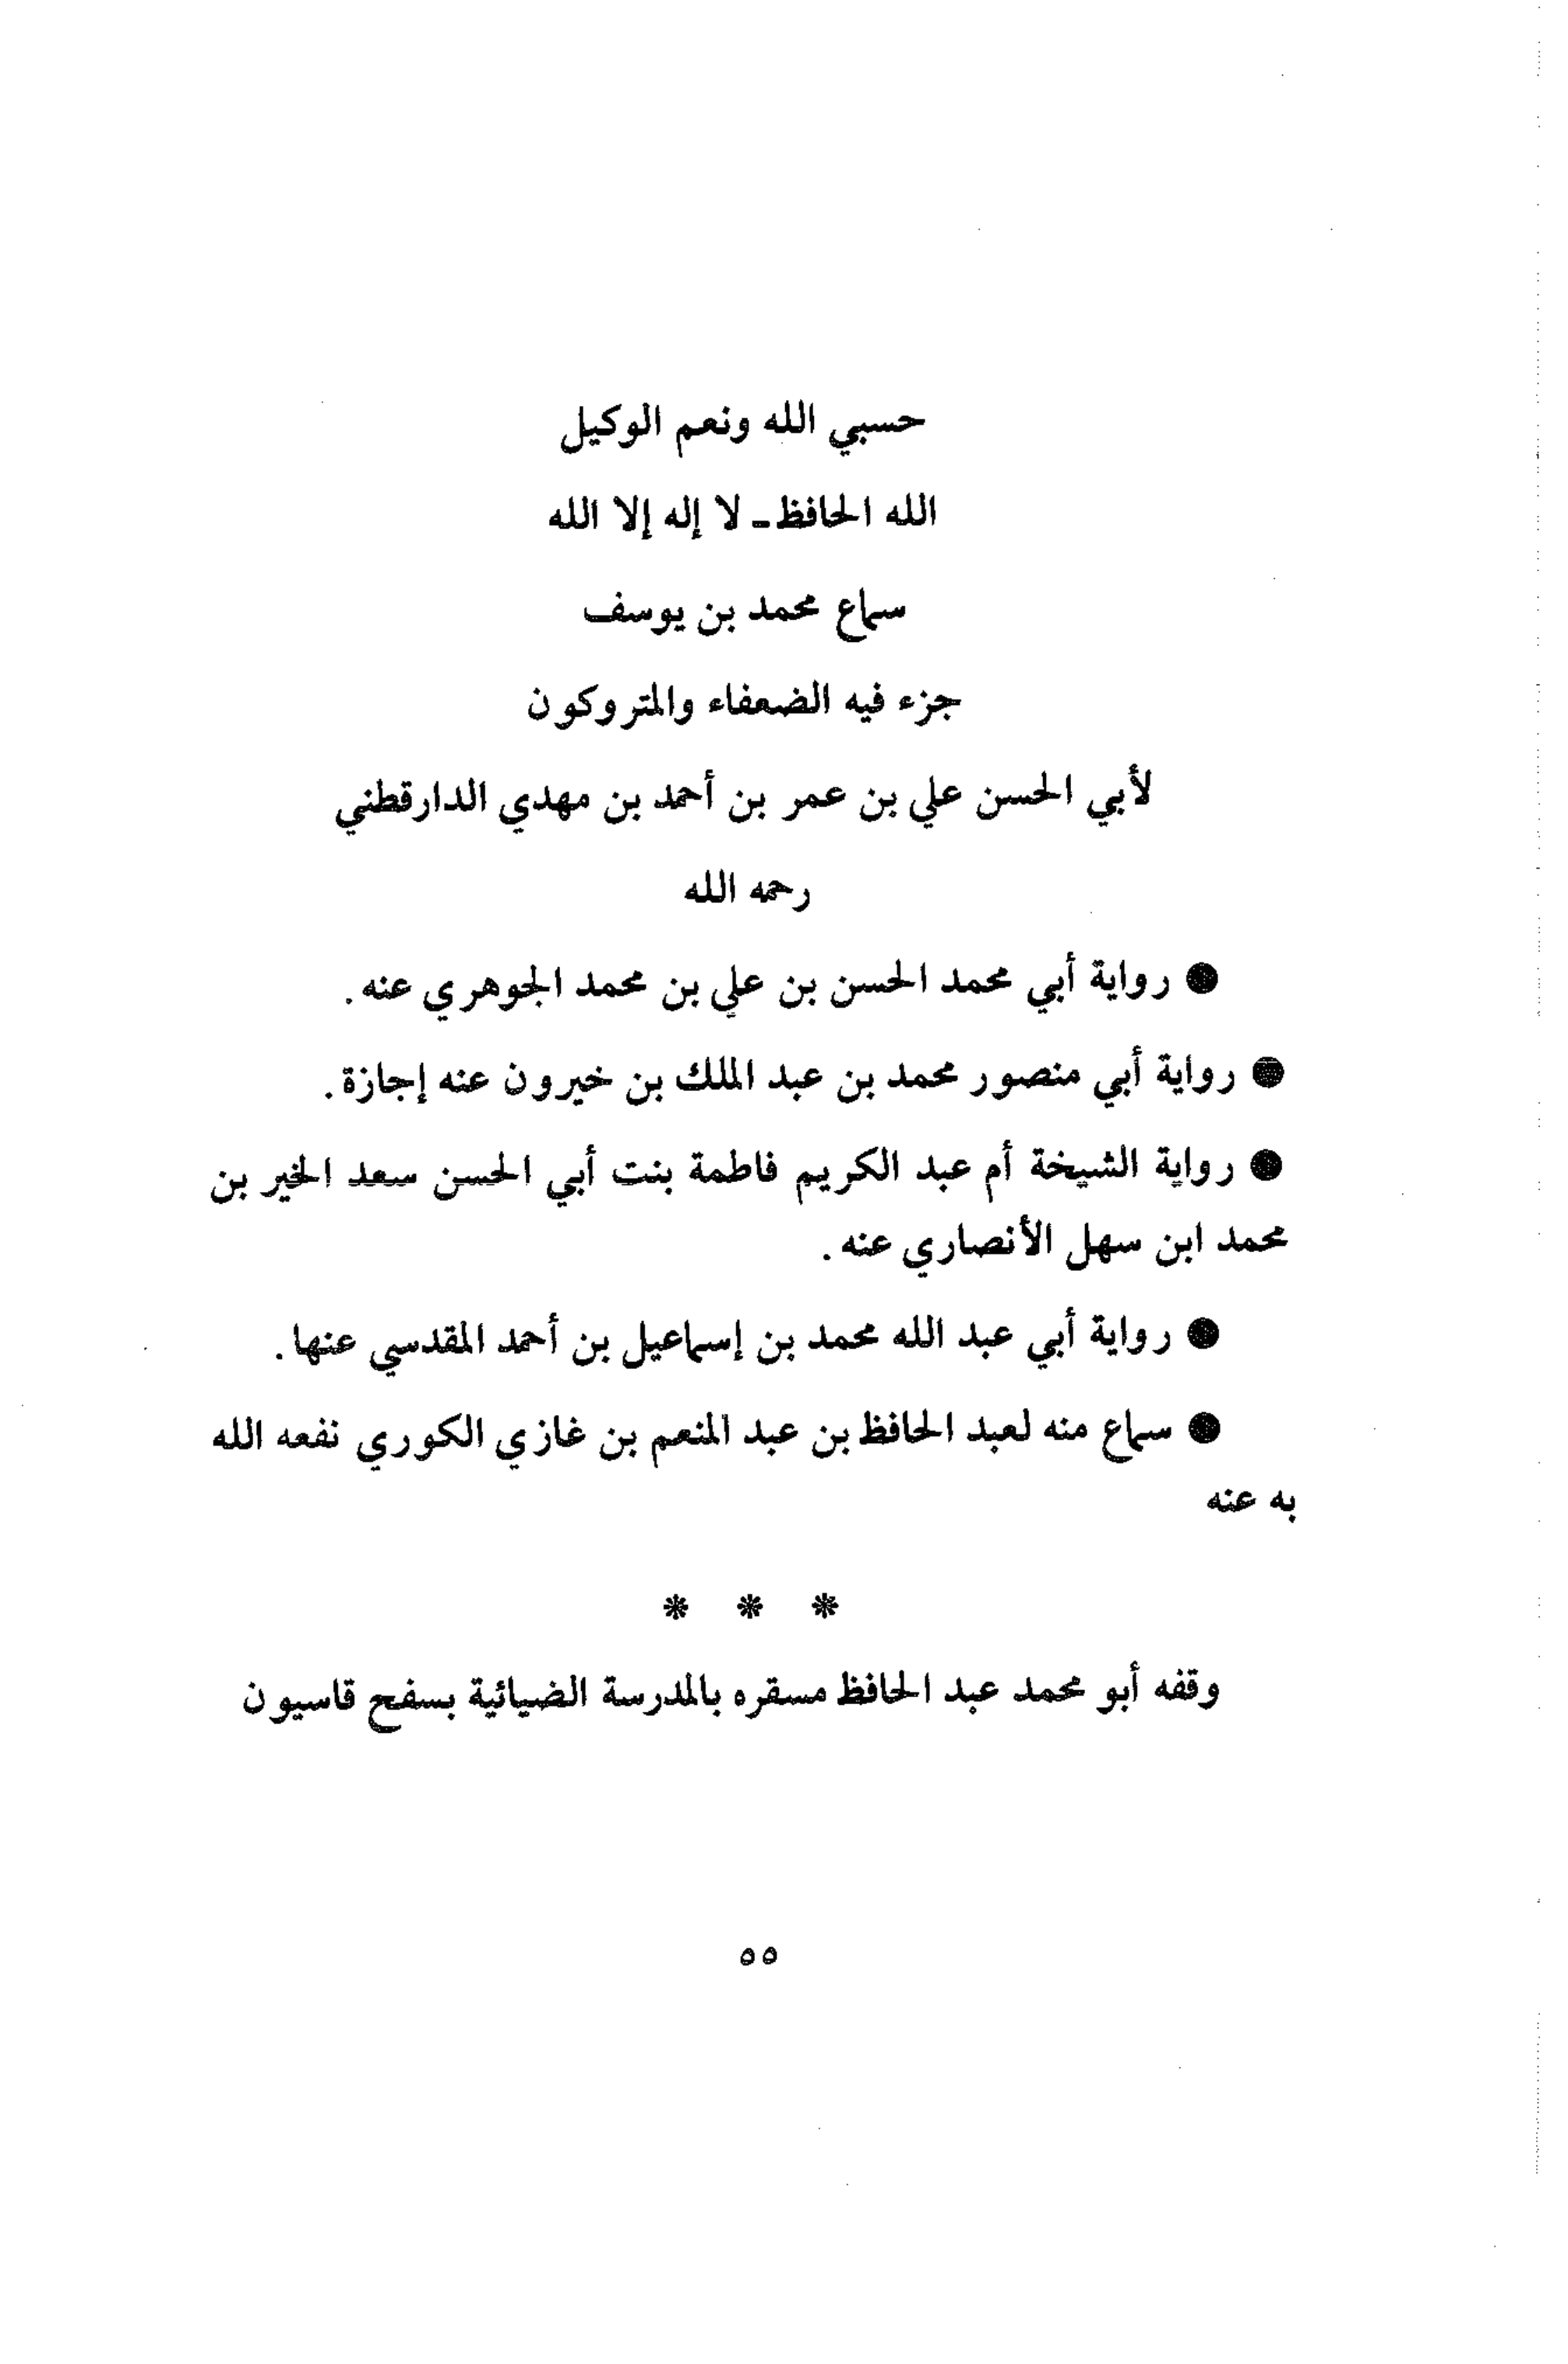 حسبي الله ونعم الوكيل
الله الحافظ ـ لا إله إلا الله
سماع محمد بن يوسف
جزء فيه الضعفاء والمتروكون
لأبي الحسن علي بن عمر بن أحمد بن مهدي الدارقطني
رحمه الله
● رواية أبي محمد الحسن بن علي بن محمد الجوهري عنه.
● رواية أبي منصور محمد بن عبد الملك بن خيرون عنه إجازة.
● رواية الشيخة أم عبد الكريم فاطمة بنت أبي الحسن سعد الخير بن
محمد ابن سهل الأنصاري عنه.
● رواية أبي عبد الله محمد بن إسماعيل بن أحمد المقدسي عنها.
● سماع منه لعبد الحافظ بن عبد المنعم بن غازي الكوري نفعه الله
به عنه
* * *
وقفه أبو محمد عبد الحافظ مسقره بالمدرسة الضيائية بسفح قاسيون
٥٥